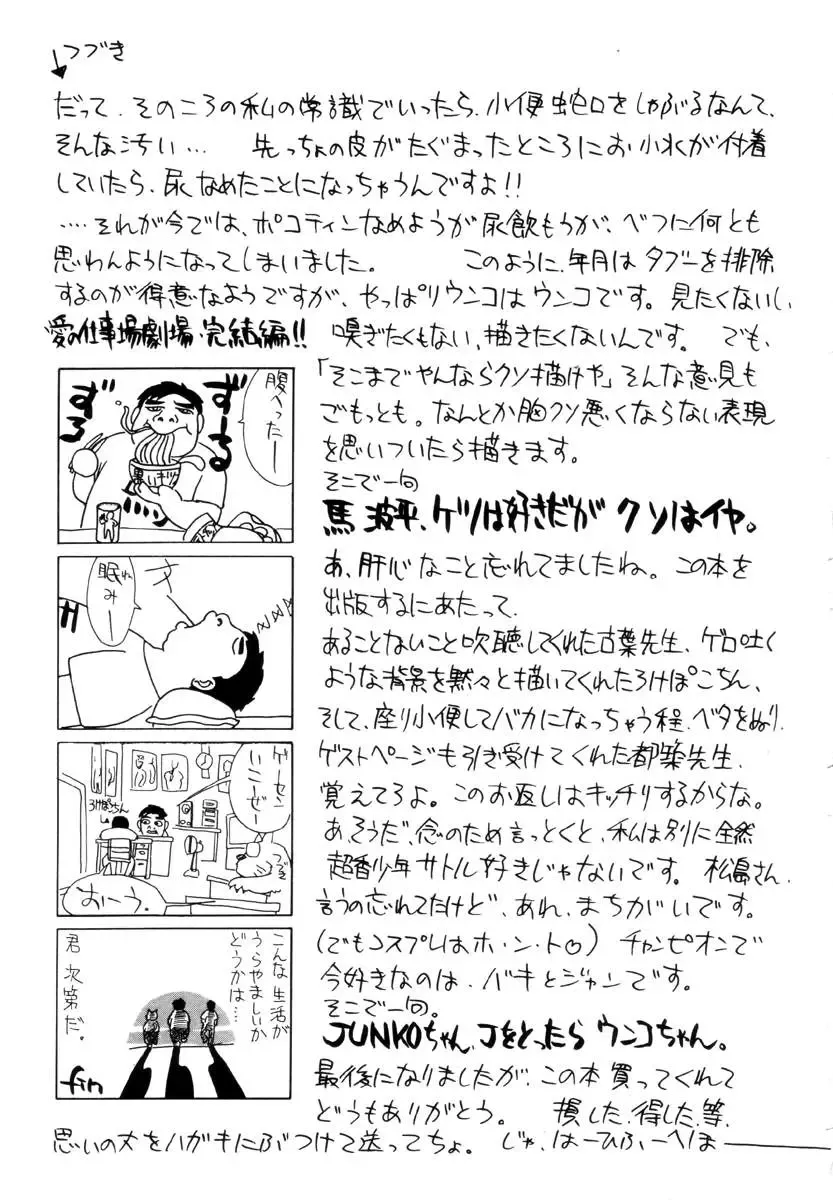 つづき
だって、そのころの私の常識でいったら、小便蛇口をしゃぶるなんて、
そんな汚い… 先っちょの皮がたぐまったところにお小水が付着
していたら、尿なめたことになっちゃうんですよ!!
‥‥それが今では、ポコティンなめようが尿飲もうが、べつに何とも
思わんようになってしまいました。 このように、年月はタブーを排除
するのが得意なようですが、やっぱりウンコはウンコです。見たくないし、
嗅ぎたくもない、描きたくないんです。 でも、
「そこまでやんならクソ描けや」そんな意見も
ごもっとも。なんとか胸クソ悪くならない表現
を思いついたら描きます。
そこで一句
馬波平、ケツは好きだがクソはイヤ。
あ、肝心なこと忘れてましたね。この本を
出版するにあたって、
あることないこと吹聴してくれた古葉先生、ゲロ吐く
ような背景を黙々と描いてくれたろけぽこちん、
そして、座り小便してバカになっちゃう程、ベタをぬり、
ゲストページも引き受けてくれた都築先生、
覚えてろよ。このお返しはキッチリするからな。
あ、そうだ、念のため言っとくと、私は別に全然
超香少年サトル好きじゃないです。 松島さん、
言うの忘れてたけど、あれ、まちがいです。
(でもコスプレはホ・ン・ト♡) チャンピオンで
今好きなのは、バキとジャンです。
そこで一句。
JUNKOちゃん、Jをとったら ウンコちゃん。
最後になりましたが、この本買ってくれて
どうもありがとう。 損した、得した、等、
思いの丈をハガキにぶつけて送ってちょ。 じゃ、はーひふーへほ
愛の仕事場劇場・完結編!!
腹へったー
ずーる
ずろ
眠みー
ね
ゲーセン
いこーぜー
ろけぽこちん
つづき
おーう。
こんな生活が
うらやましいか
どうかは…
君次第だ。
fin